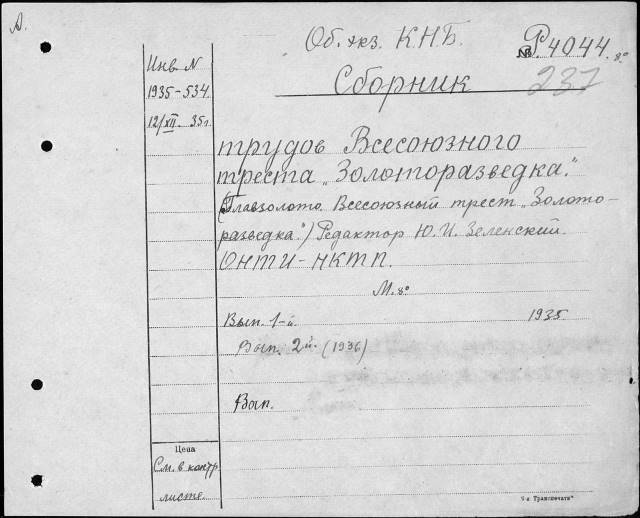 А.
Об. экз. К.Н.Б.
№ Р4044. 8°
237
Сборник
Инв. N
1935-534.
12/XII. 35г.
трудов Всесоюзного
треста „Золоторазведка."
(Главзолото. Всесоюзный трест „Золото-
разведка.") Редактор Ю. И. Зеленский.
ОНТИ-НКТП.
М. 8°
Вып. 1-й. 1935.
Вып. 2й. (1936)
Вып.
Цена
См. в контр.
листе.
Транспечати"